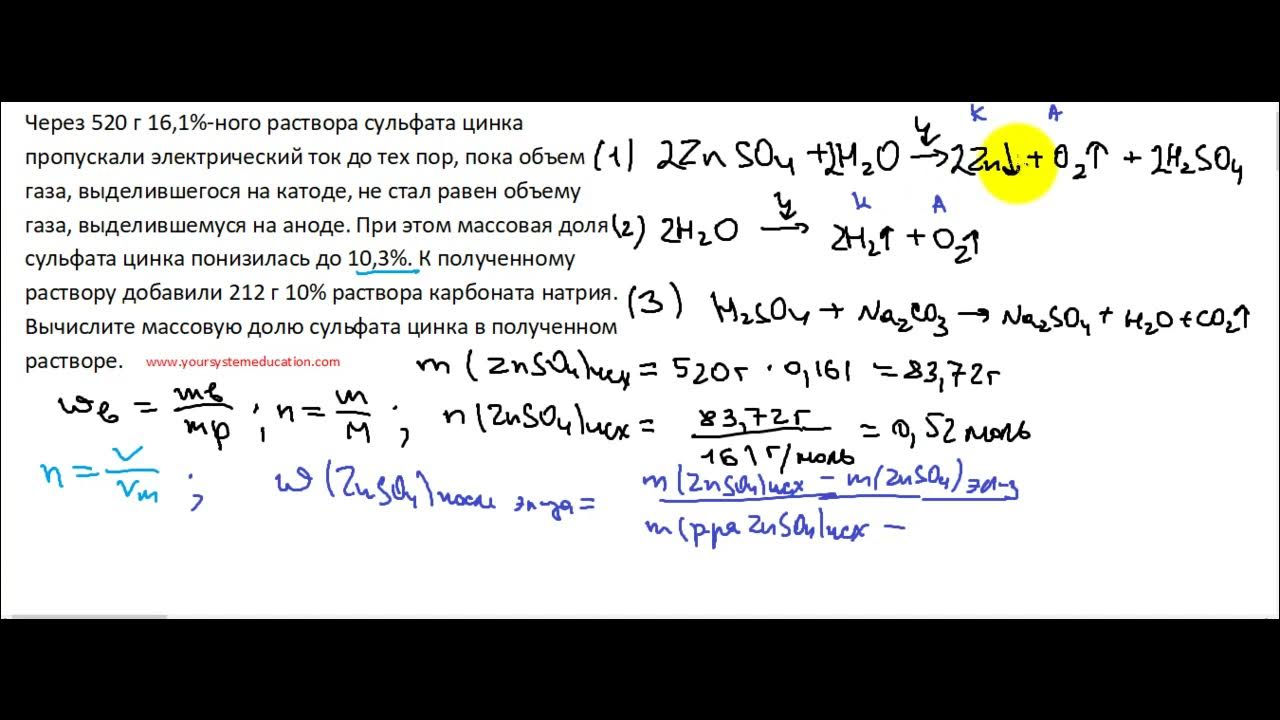 Через 520 г 16,1%-ного раствора сульфата цинка
пропускали электрический ток до тех пор, пока объем
газа, выделившегося на катоде, не стал равен объему
газа, выделившемуся на аноде. При этом массовая доля
сульфата цинка понизилась до 10,3%. К полученному
раствору добавили 212 г 10% раствора карбоната натрия.
Вычислите массовую долю сульфата цинка в полученном
растворе. www.yoursystemeducation.com
К А
(1) 2ZnSO₄ + 2H₂O →(э) 2Zn↓ + O₂↑ + 2H₂SO₄
К А
(2) 2H₂O →(э) 2H₂↑ + O₂↑
(3) H₂SO₄ + Na₂CO₃ → Na₂SO₄ + H₂O + CO₂↑
m(ZnSO₄)исх = 520г · 0,161 = 83,72г
wв = mв/mр ; n = m/M ; n(ZnSO₄)исх = 83,72г / 161г/моль = 0,52 моль
n = V/Vm ; w(ZnSO₄)после эл-за = m(ZnSO₄)исх − m(ZnSO₄)эл-з / m(р-ра ZnSO₄)исх −